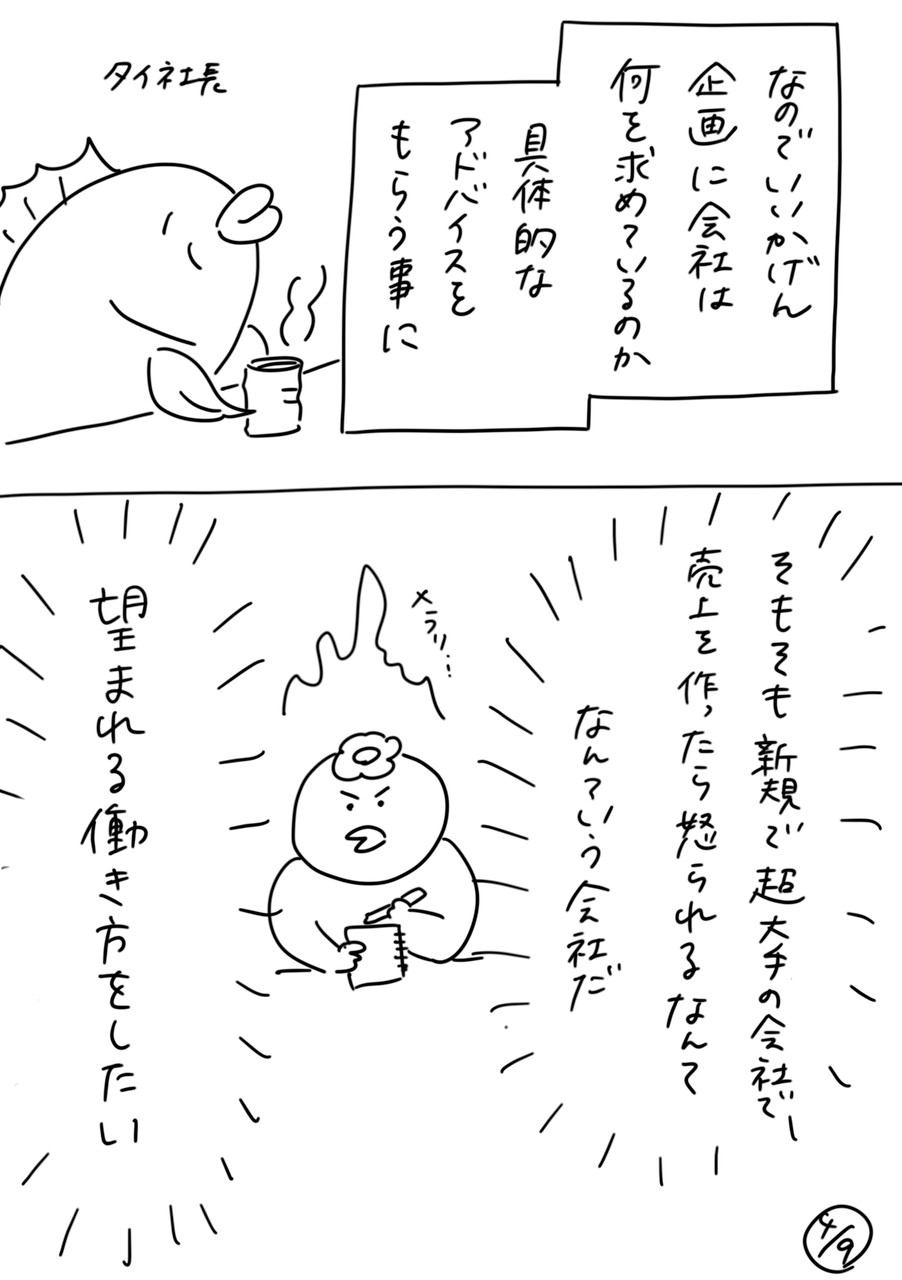 なのでいいかげん
企画に会社は
何を求めているのか
具体的な
アドバイスを
もらう事に
タイ社長
そもそも新規で超大手の会社で
売上を作ったら怒られるなんて
なんていう会社だ
メラリ…
望まれる働き方をしたい
4/9